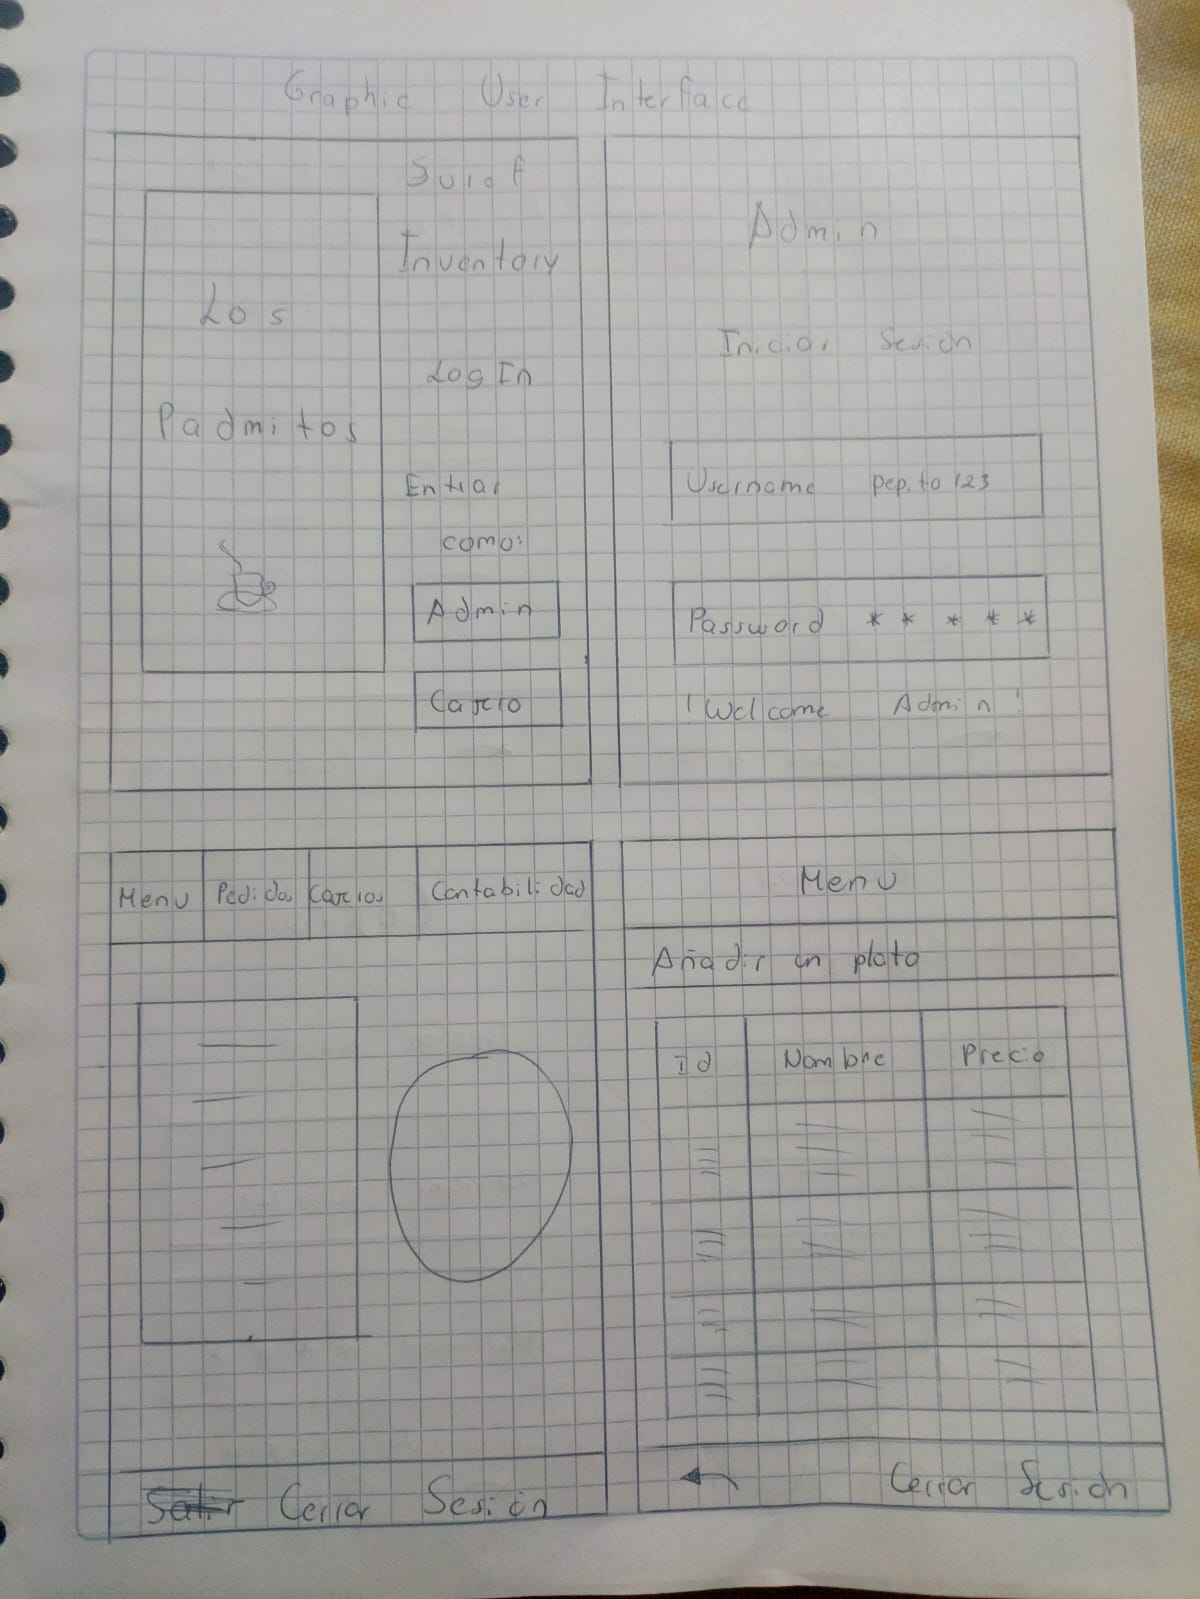 Graphic User Interface
Swift
Inventory
Los
Padmitos
Log In
Entrar
como:
Admin
Cajero
Admin
Iniciar Sesión
Username pepito123
Password * * * * *
! Welcome Admin !
Menu Pedidos Cajeros Contabilidad
Cerrar Sesión
Menu
Añadir un plato
Id Nombre Precio
Cerrar Sesion